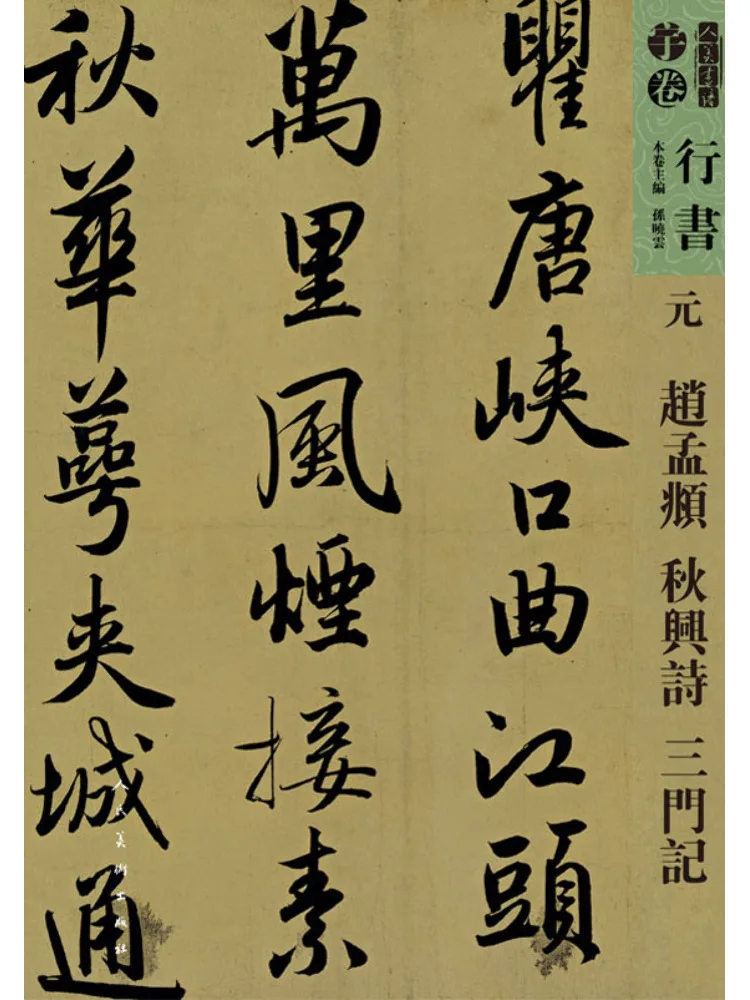 人美書譜
宇卷
行書
本卷主編 孫曉雲
元 趙孟頫 秋興詩 三門記
瞿唐峡口曲江頭
萬里風煙接素
秋華蕚夹城通
人民美術出版社